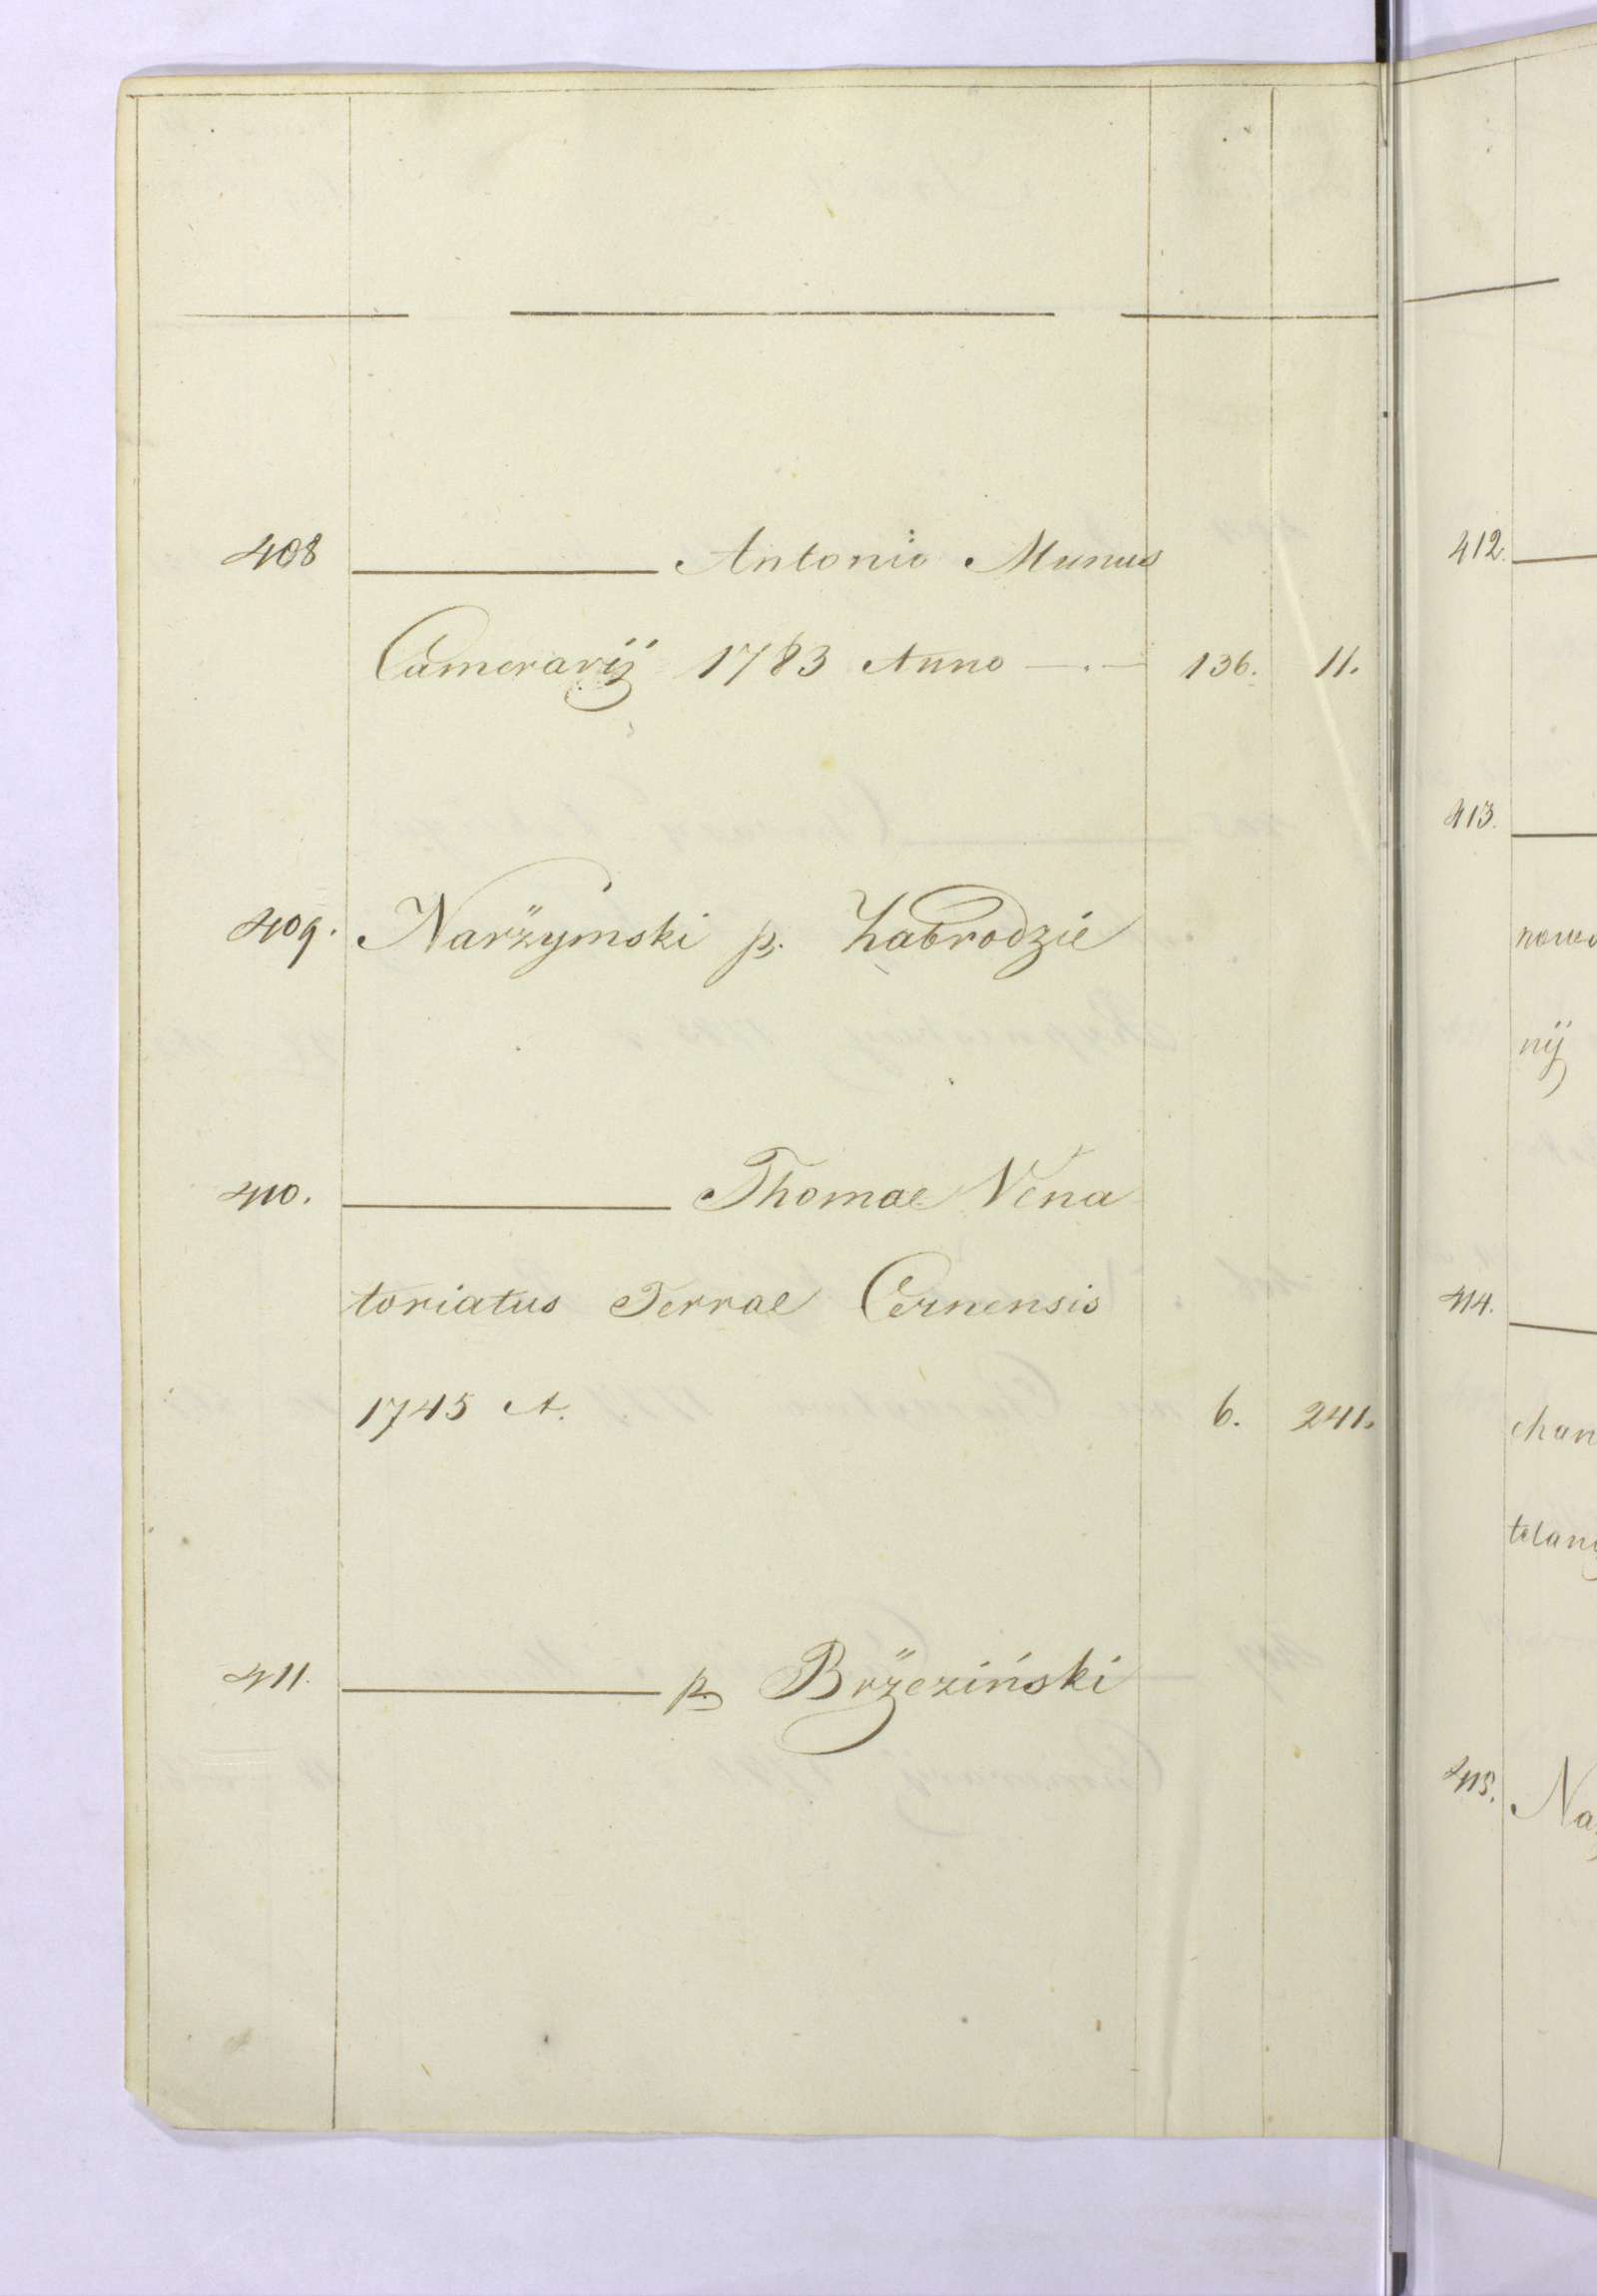 408 ——— Antonio Munus
Camerarij 1783 Anno —.— 136. 11.
409. Narżymski p. Zabrodzie
410. ——— Thomae Vena
toriatus Terrae Cernensis
1745 A. 6. 241.
411. ——— p. Brżeziński
412.
413.
nowo
nij
414.
chan
telan
415. Na